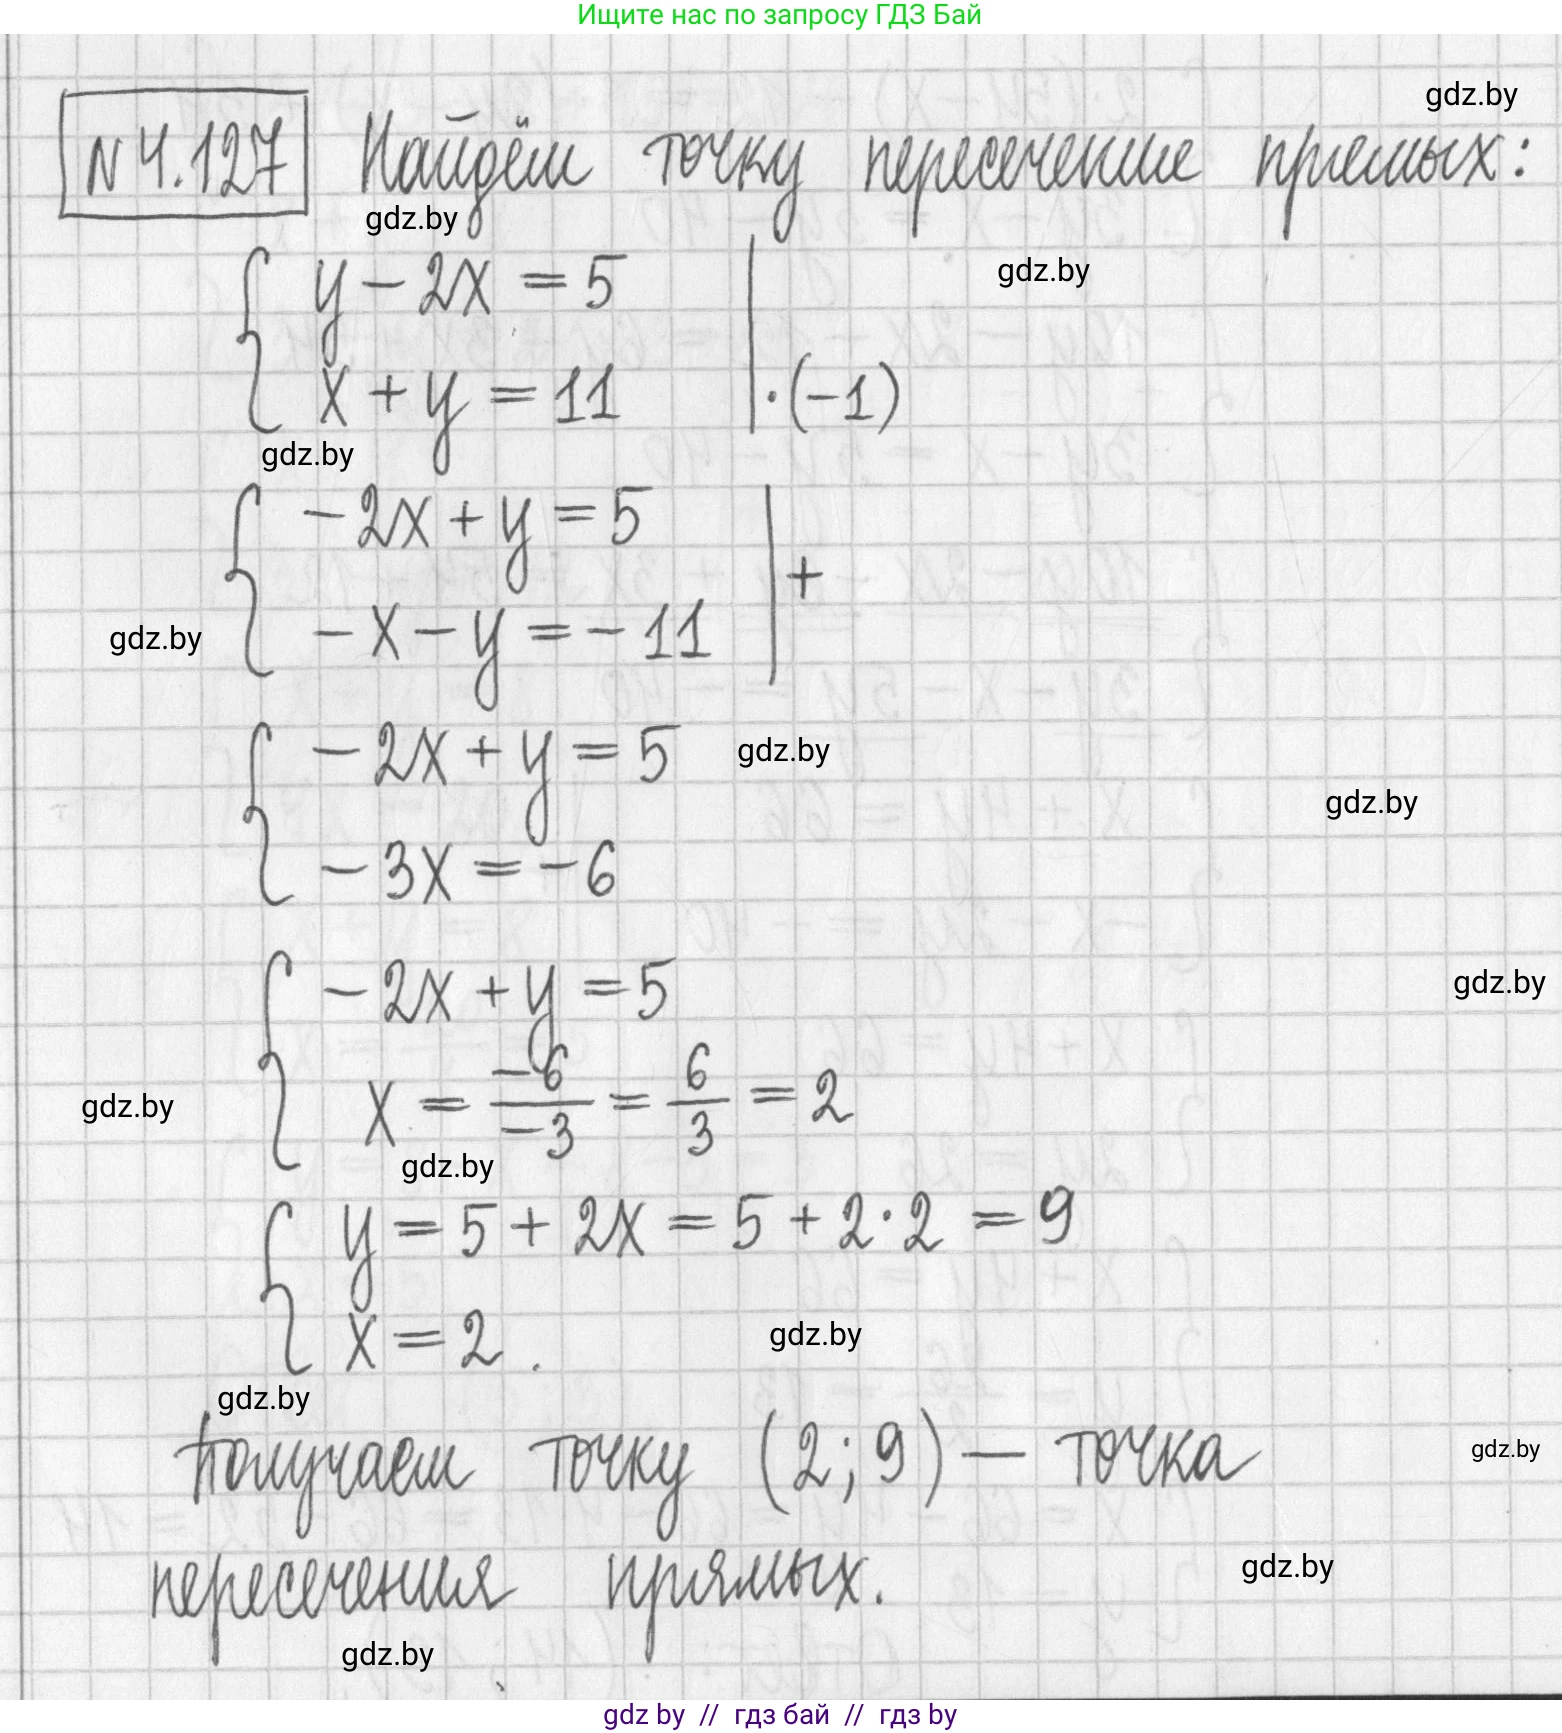 Ищите нас по запросу ГДЗ Бай
gdz.by
N 4.127 Найдём точку пересечение прямых:
gdz.by
{ y - 2x = 5 |
gdz.by
x + y = 11 | · (-1)
gdz.by
{ -2x + y = 5 | +
-x - y = -11
gdz.by
{ -2x + y = 5
gdz.by
gdz.by
-3x = -6
{ -2x + y = 5
gdz.by
x = -6/-3 = 6/3 = 2
gdz.by
gdz.by
{ y = 5 + 2x = 5 + 2·2 = 9
x = 2.
gdz.by
gdz.by
Получаем точку (2; 9) — точка
gdz.by
пересечения прямых.
gdz.by
gdz.by
gdz by // гдз бай // гдз by